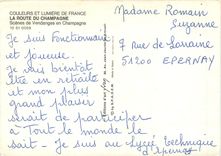 COULEURS ET LUMIÈRE DE FRANCE
LA ROUTE DU CHAMPAGNE
Scènes de Vendanges en Champagne
Je suis Fonctionnaire
et joueuse.
Je vais bientôt
être en retraite
et mon plus
grand plaisir
serait de participer
à Tout le monde le
sait - Je suis au Lycée Technique
d'Epernay
Madame Romain
Suzanne
7 rue de Lorraine
51200 EPERNAY